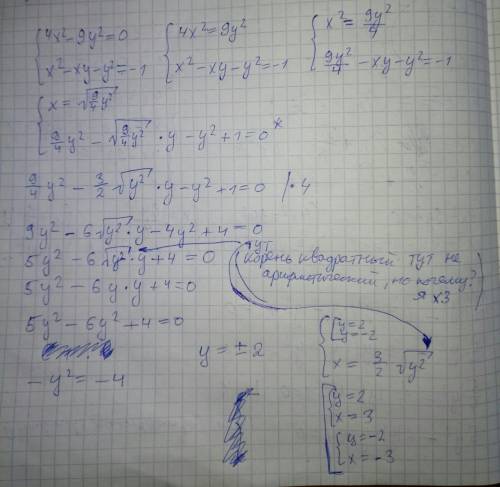 {4x²-9y²=0   {4x²=9y²   {x²=9y²/4
{x²-xy-y²=-1   {x²-xy-y²=-1   {9y²/4-xy-y²=-1
{x=√(9/4y²)
{9/4y²-√(9/4y²)·y-y²+1=0*
9/4y²-3/2√y²·y-y²+1=0 |·4
9y²-6√y²·y-4y²+4=0
5y²-6√y²·y+4=0
5y²-6y·y+4=0
5y²-6y²+4=0
-y²=-4
y=±2
тут
(корень квадратный тут не
арифметический, но почему?
я хз)
{[y=2
[y=-2
{x=3/2√y²
[{y=2
{x=3
{y=-2
{x=-3